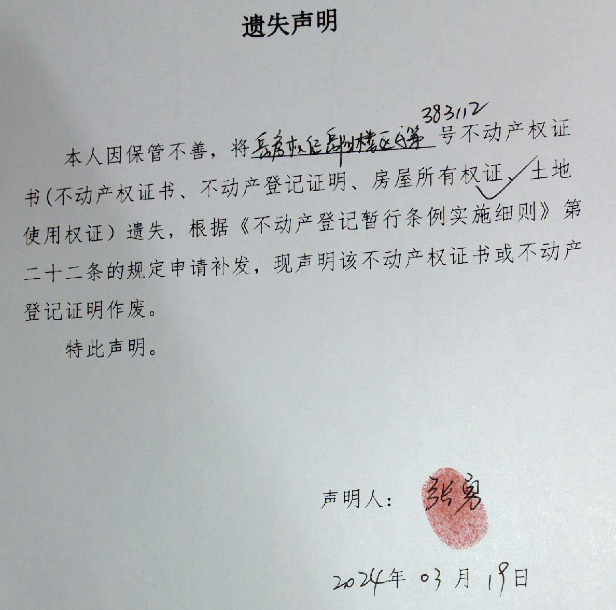 遗失声明
383112
本人因保管不善,将岳房权证岳阳楼区字第号不动产权证
书(不动产权证书、不动产登记证明、房屋所有权证、土地
使用权证)遗失,根据《不动产登记暂行条例实施细则》第
二十二条的规定申请补发,现声明该不动产权证书或不动产
登记证明作废。
特此声明。
声明人:张勇
2024年03月19日